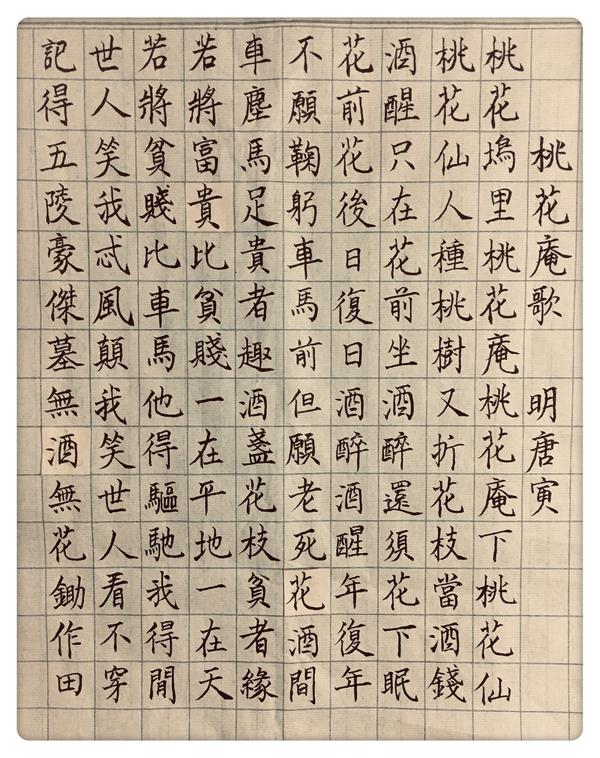 桃花庵歌 明唐寅
桃花塢里桃花庵桃花庵下桃花仙
桃花仙人種桃樹又折花枝當酒錢
酒醒只在花前坐酒醉還須花下眠
花前花後日復日酒醉酒醒年復年
不願鞠躬車馬前但願老死花酒間
車塵馬足貴者趣酒盞花枝貧者緣
若將富貴比貧賤一在平地一在天
若將貧賤比車馬他得驅馳我得閒
世人笑我忒風顛我笑世人看不穿
記得五陵豪傑墓無酒無花鋤作田